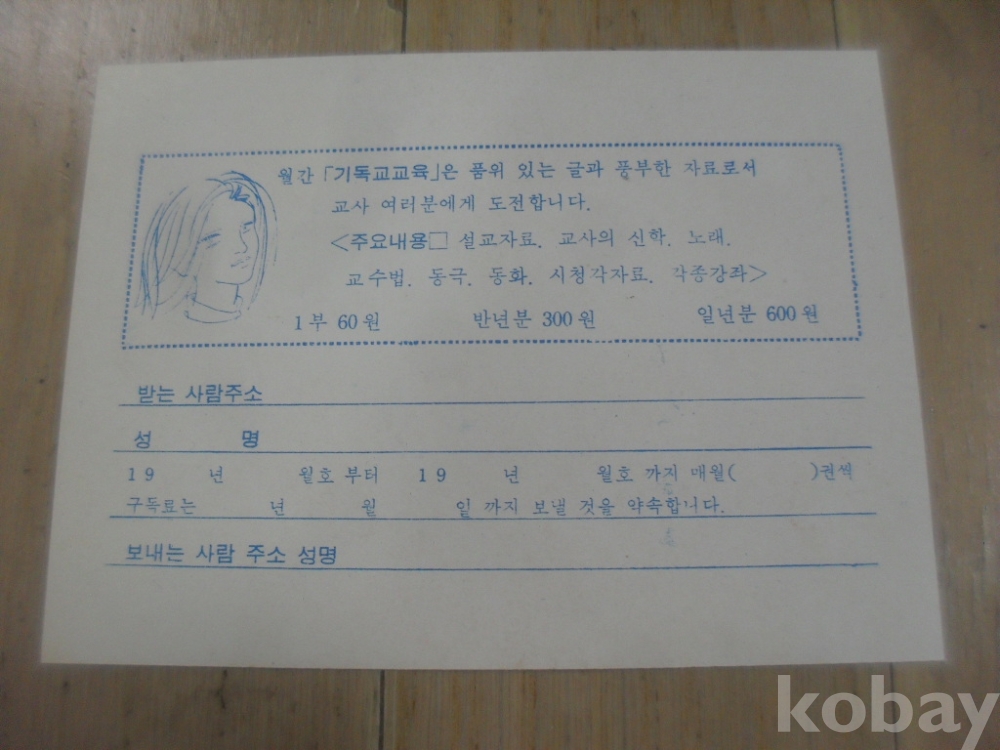 월간 「기독교교육」은 품위 있는 글과 풍부한 자료로서
교사 여러분에게 도전합니다.
<주요내용□ 설교자료. 교사의 신학. 노래.
교수법. 동극. 동화. 시청각자료. 각종강좌>
1부 60원 반년분 300원 일년분 600원
받는 사람주소
성 명
19 년 월호 부터 19 년 월호 까지 매월( )권씩
구독료는 년 월 일 까지 보낼 것을 약속합니다.
보내는 사람 주소 성명
kobay